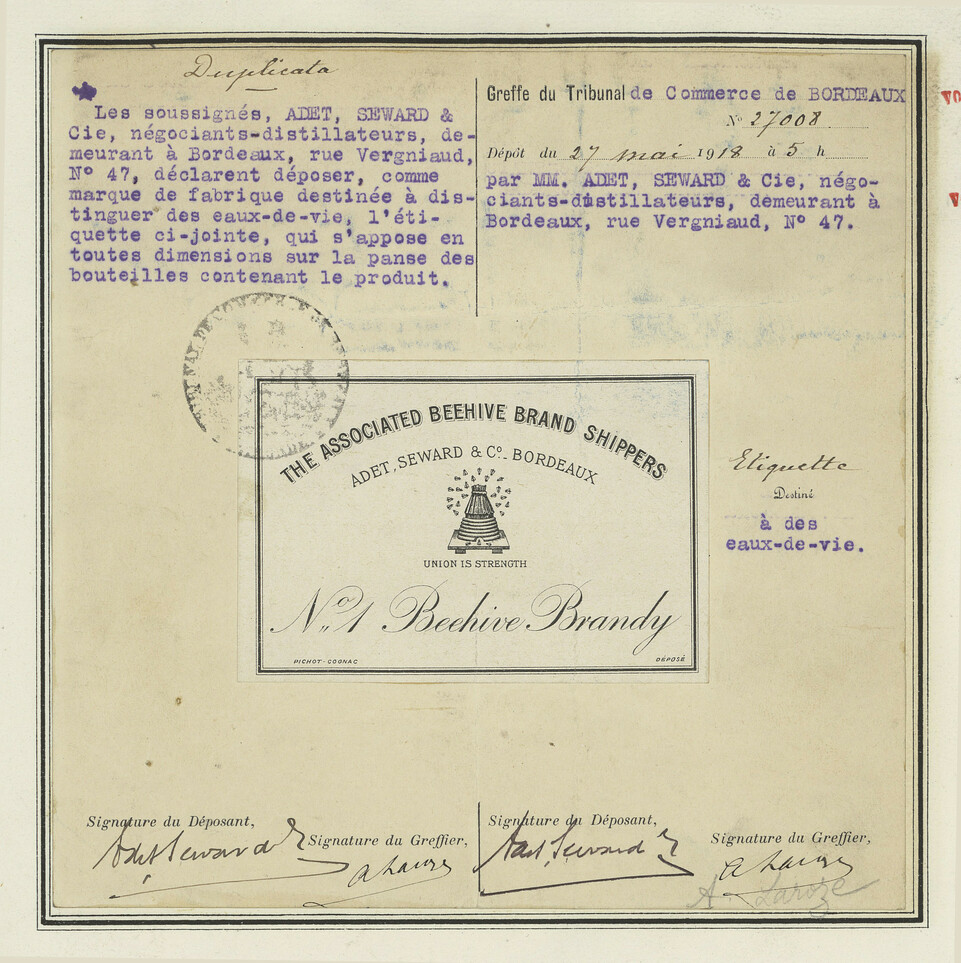 Duplicata
Les soussignés, ADET, SEWARD &
Cie, négociants-distillateurs, de-
meurant à Bordeaux, rue Vergniaud,
N° 47, déclarent déposer, comme
marque de fabrique destinée à dis-
tinguer des eaux-de-vie, l'éti-
quette ci-jointe, qui s'appose en
toutes dimensions sur la panse des
bouteilles contenant le produit.
Greffe du Tribunal de Commerce de BORDEAUX
N° 27008
Dépôt du 27 mai 1918 à 5 h
par MM. ADET, SEWARD & Cie, négo-
ciants-distillateurs, demeurant à
Bordeaux, rue Vergniaud, N° 47.
THE ASSOCIATED BEEHIVE BRAND SHIPPERS
ADET, SEWARD & Co. BORDEAUX
UNION IS STRENGTH
No. 1 Beehive Brandy
PICHOT-COGNAC
DÉPOSÉ
Etiquette
Destiné
à des
eaux-de-vie.
Signature du Déposant,
Adet Seward
Signature du Greffier,
Signature du Déposant,
Adet, Seward
Signature du Greffier,
A. Laroze